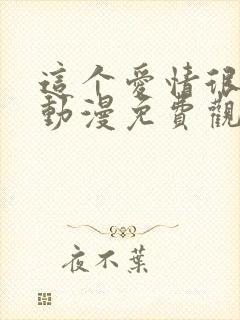 這个愛情很
動漫免費觀
夜不葉